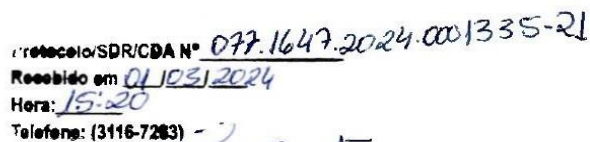 Protocolo/SDR/CDA Nº 077.1647.2024.0001335-21
Recebido em 01/03/2024
Hora: 15:20
Telefone: (3116-7283)